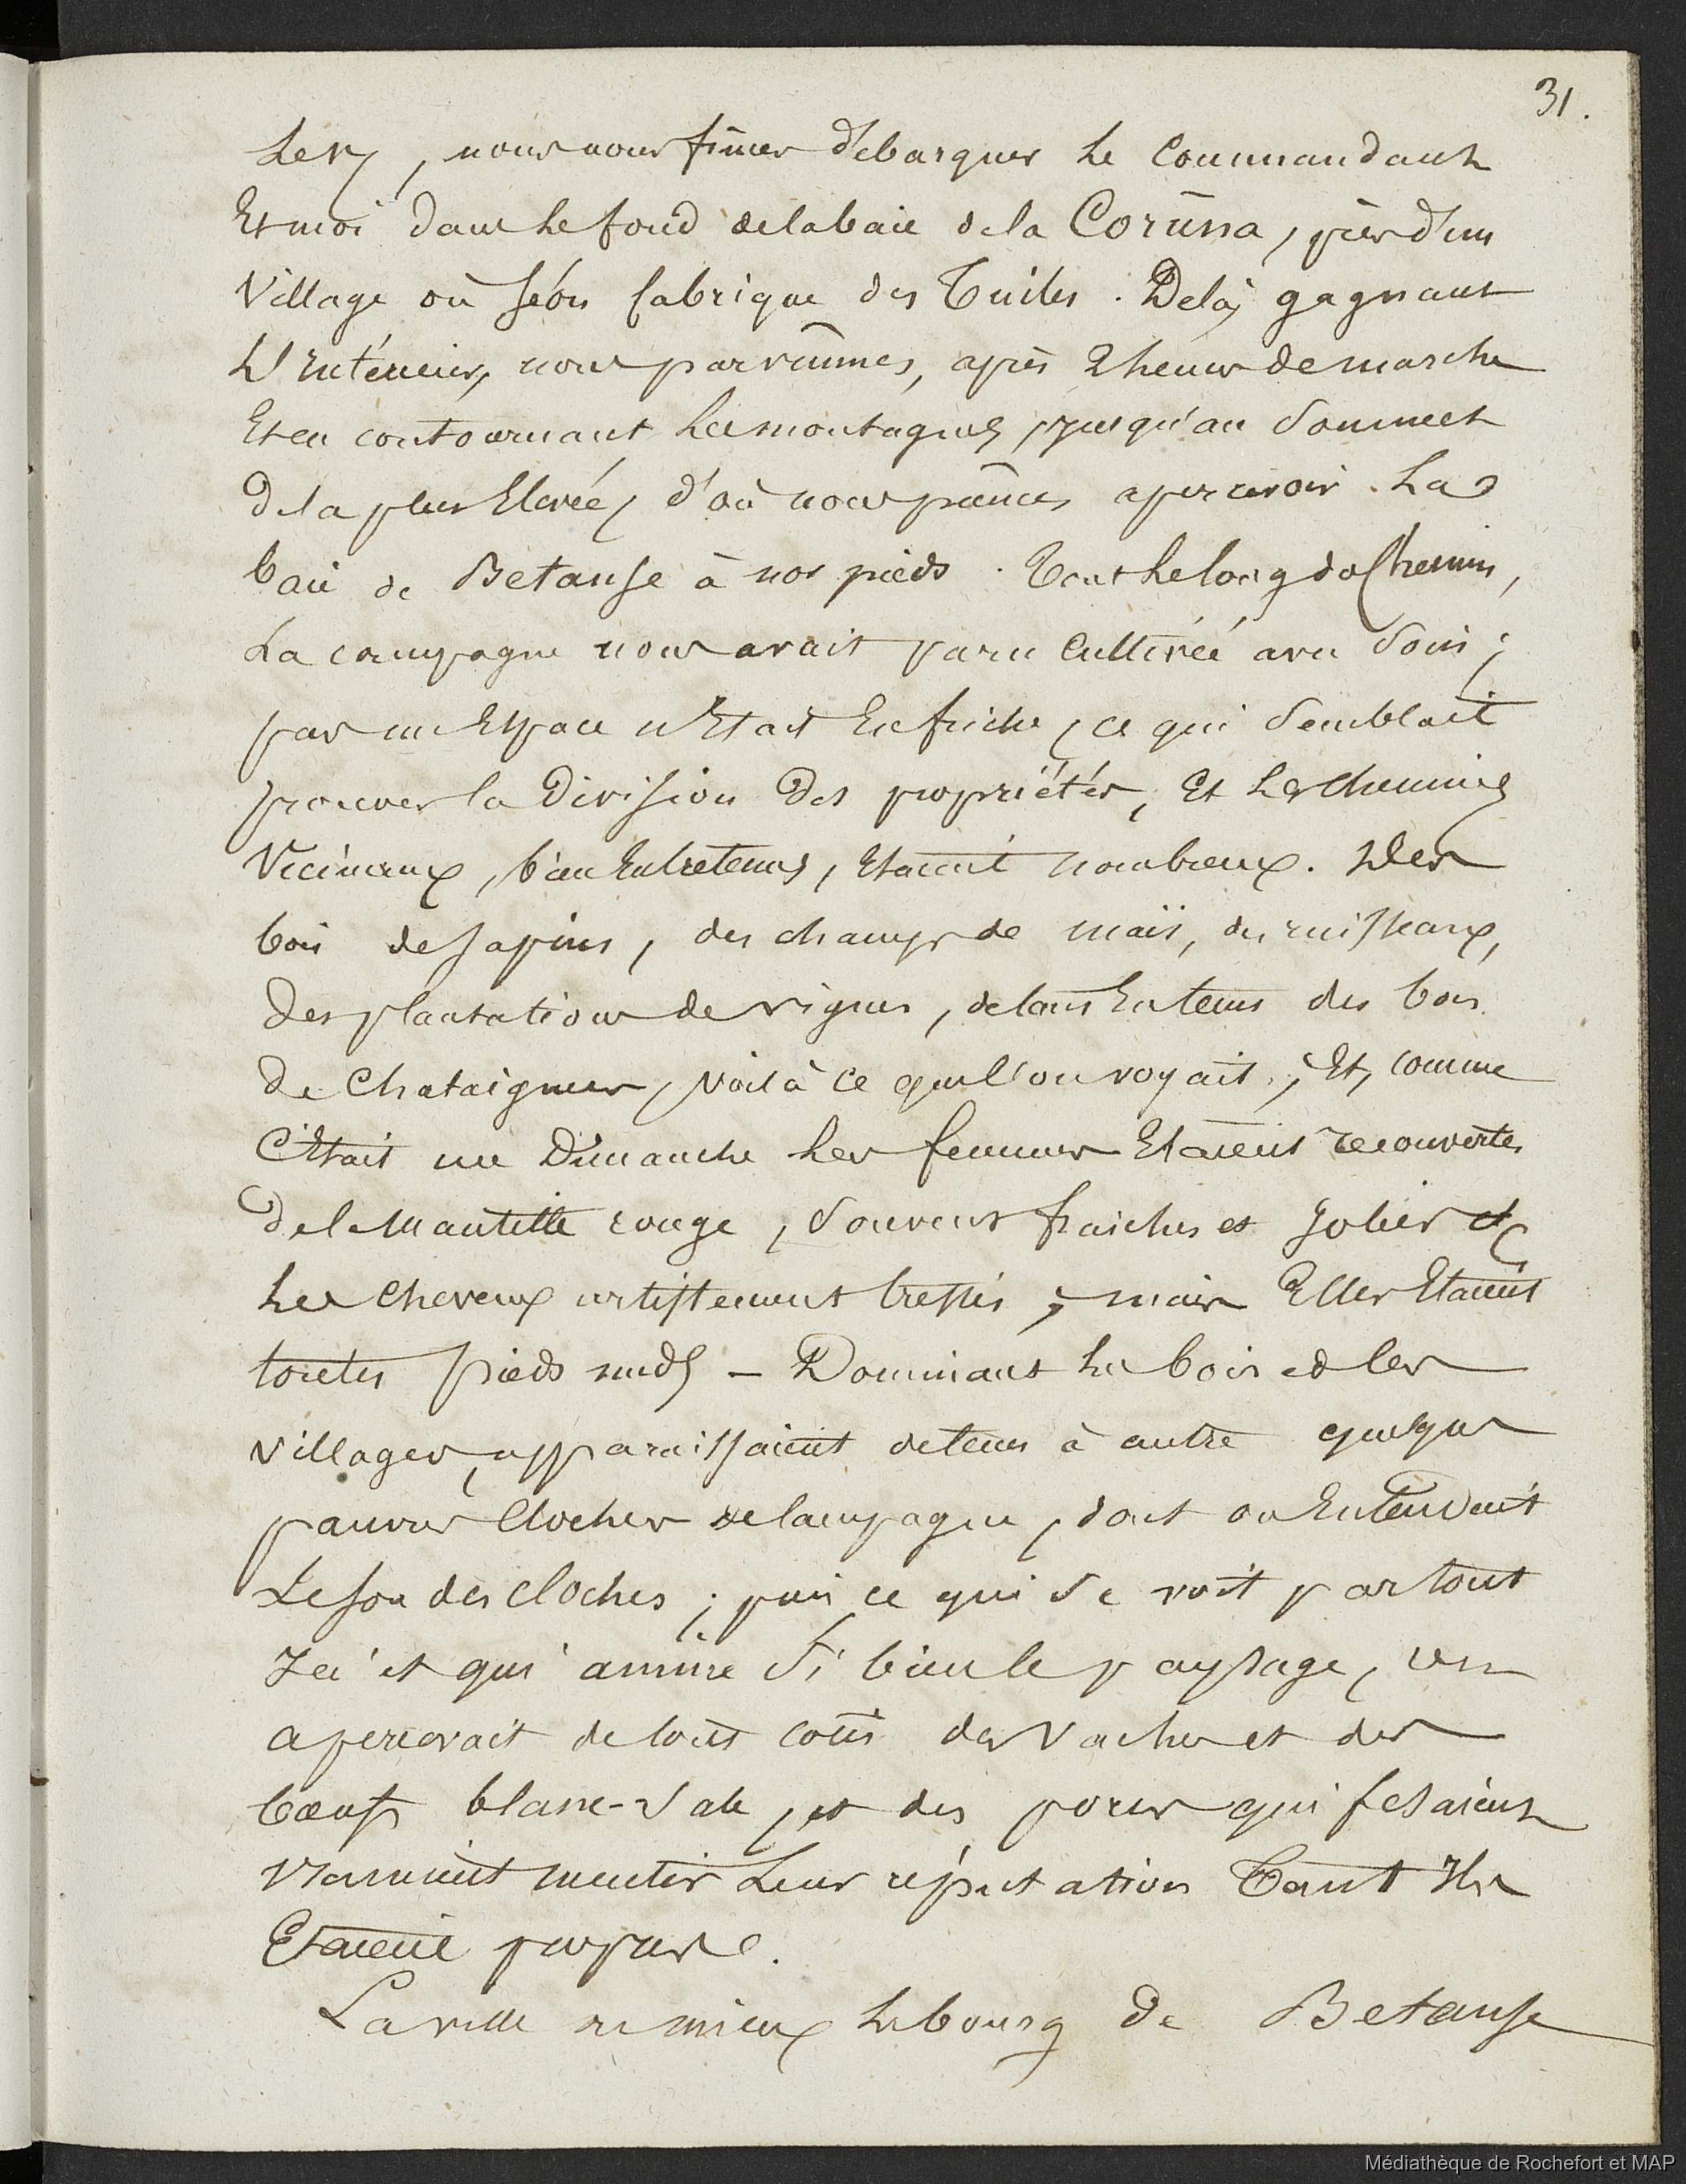 31.
Levy, nous nous fîmes débarquer le Commandant
Et moi dans le fond de la baie de la Coruna, près d'un
Village où l'on fabrique des Tuiles. Delà, gagnant
L'Intérieur, nous parvinmes, après 2 heures de marche
Et en contournant les montagnes, jusqu'au Sommet
De la plus Elevée, d'où nous pûmes apercevoir La
baie de Betanse à nos pieds. Tout le long du Chemin,
La campagne nous avait paru Cultivée avec Soin;
pas un Espace n'Etait En friche, ce qui Semblait
prouver la Division Des propriétés, Et les Chemins
Vicinaux, bien Entretenus, Etaient nombreux. Des
bois de Sapins, des champs de maïs, des ruisseaux,
Des plantations de vignes, de tems En tems des bois
De Chataigners, voilà ce que l'on voyait; Et, comme
C'Etait un Dimanche les femmes Etaient recouvertes
De la Mantille rouge, Souvent fraiches et Jolies et
les Cheveux artistement tressés; mais Elles Etaient
toutes pieds nuds - Dominant les bois et les
villages, apparaissaient de tems à autre quelques
pauvres Clochers de campagne, dont on Entendait
Le son des cloches; puis ce qui Se voit partout
Ici et qui anime Si bien le paysage, on
apercevait de tous cotés des Vaches et des
boeufs blanc-Sale, et des porcs qui fesaient
vraiment mentir Leur réputation Tant Ils
Etaient propres.
La ville ou mieux le bourg de Betanse
Médiathèque de Rochefort et MAP